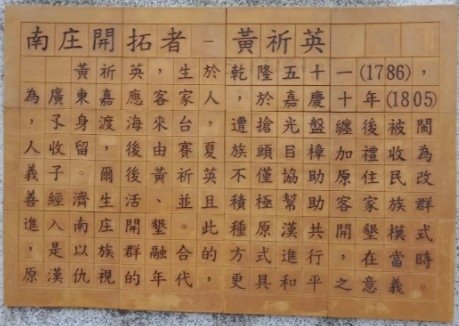 南庄開拓者-黃祈英
黃祈英，生於乾隆五十一(1786)，
為廣東嘉應客家人，於嘉慶十年(1805)
，孑身渡海來台，遭搶光盤纏後被閩
人收留。後由賽夏族頭目樟加禮收為
義子。爾後黃祈英不僅協助原住民改
善經濟生活、並且積極幫助客家族群
進入南庄開墾。此種原漢共開墾模式
，是以族群融合的方式進行，在當時
原漢仇視的年代，更具和平之意義。